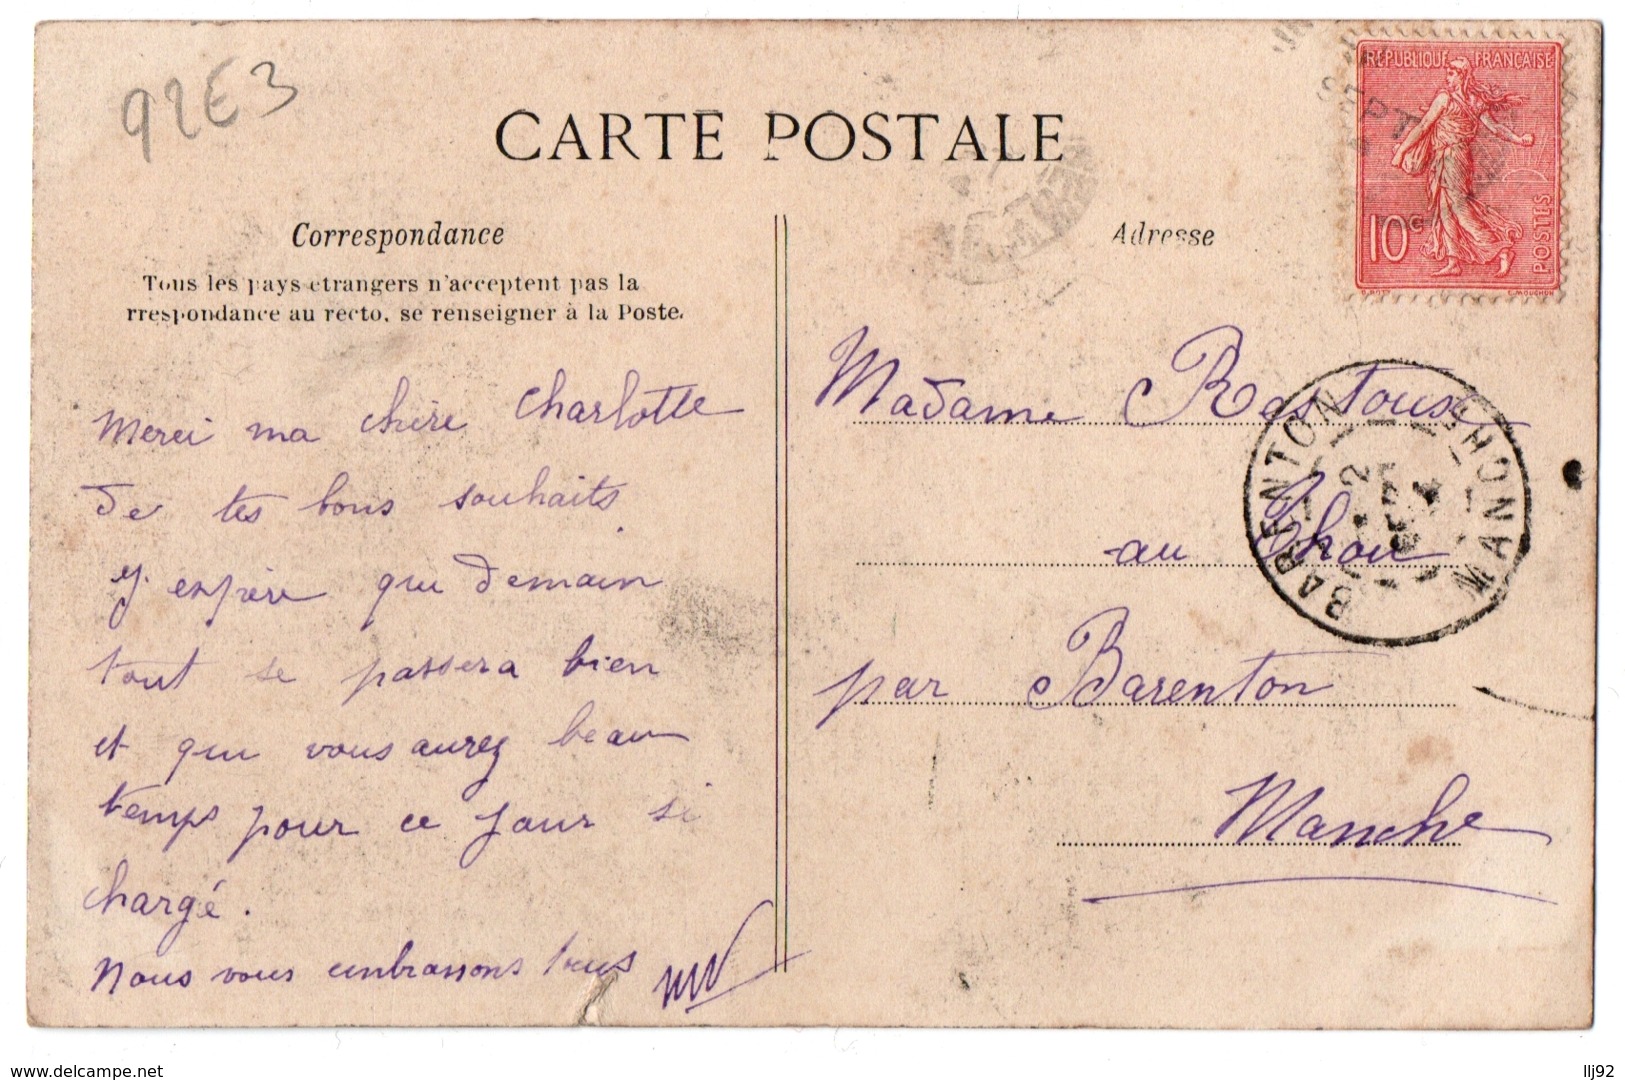 92E3
CARTE POSTALE
Correspondance
Tous les pays etrangers n'acceptent pas la
rrespondance au recto, se renseigner à la Poste.
Merci ma chère Charlotte
de tes bons souhaits
J'espère que demain
tout se passera bien
et que vous aurez beau
temps pour ce jour si
chargé.
Nous vous embrassons tous
Adresse
REPUBLIQUE FRANÇAISE
10c
POSTES
O.ROTY
L.MOUCHON
Madame Restoux
au Chou
par Barenton
Manche
BARENTON
MANCHE
www.delcampe.net
llj92